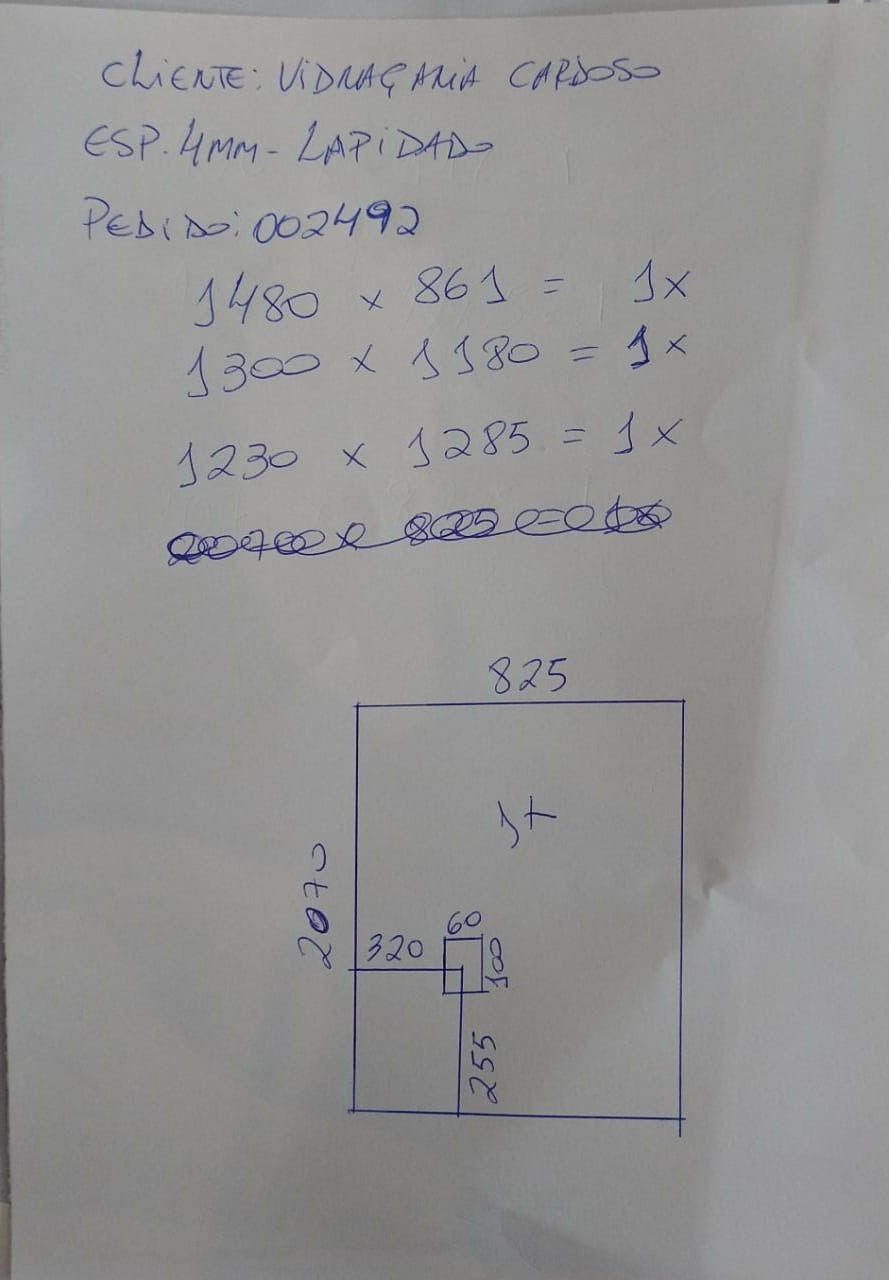 CLIENTE: VIDRAÇARIA CARDOSO
ESP. 4MM - LAPIDADO
PEDIDO: 002492
1480 x 861 = 1x
1300 x 1180 = 1x
1230 x 1285 = 1x
2070 x 825 = 1x
825
1x
2070
60
320
100
255